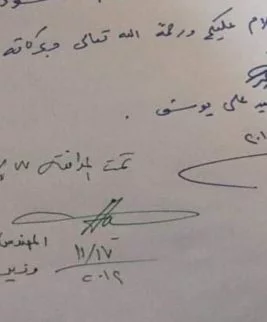 لام عليكم ورحمة الله تعالى وبركاته
يد علي يوسف .
تمت الموافقة
المهندس
١١/١٧
وزير
٢٠١٩